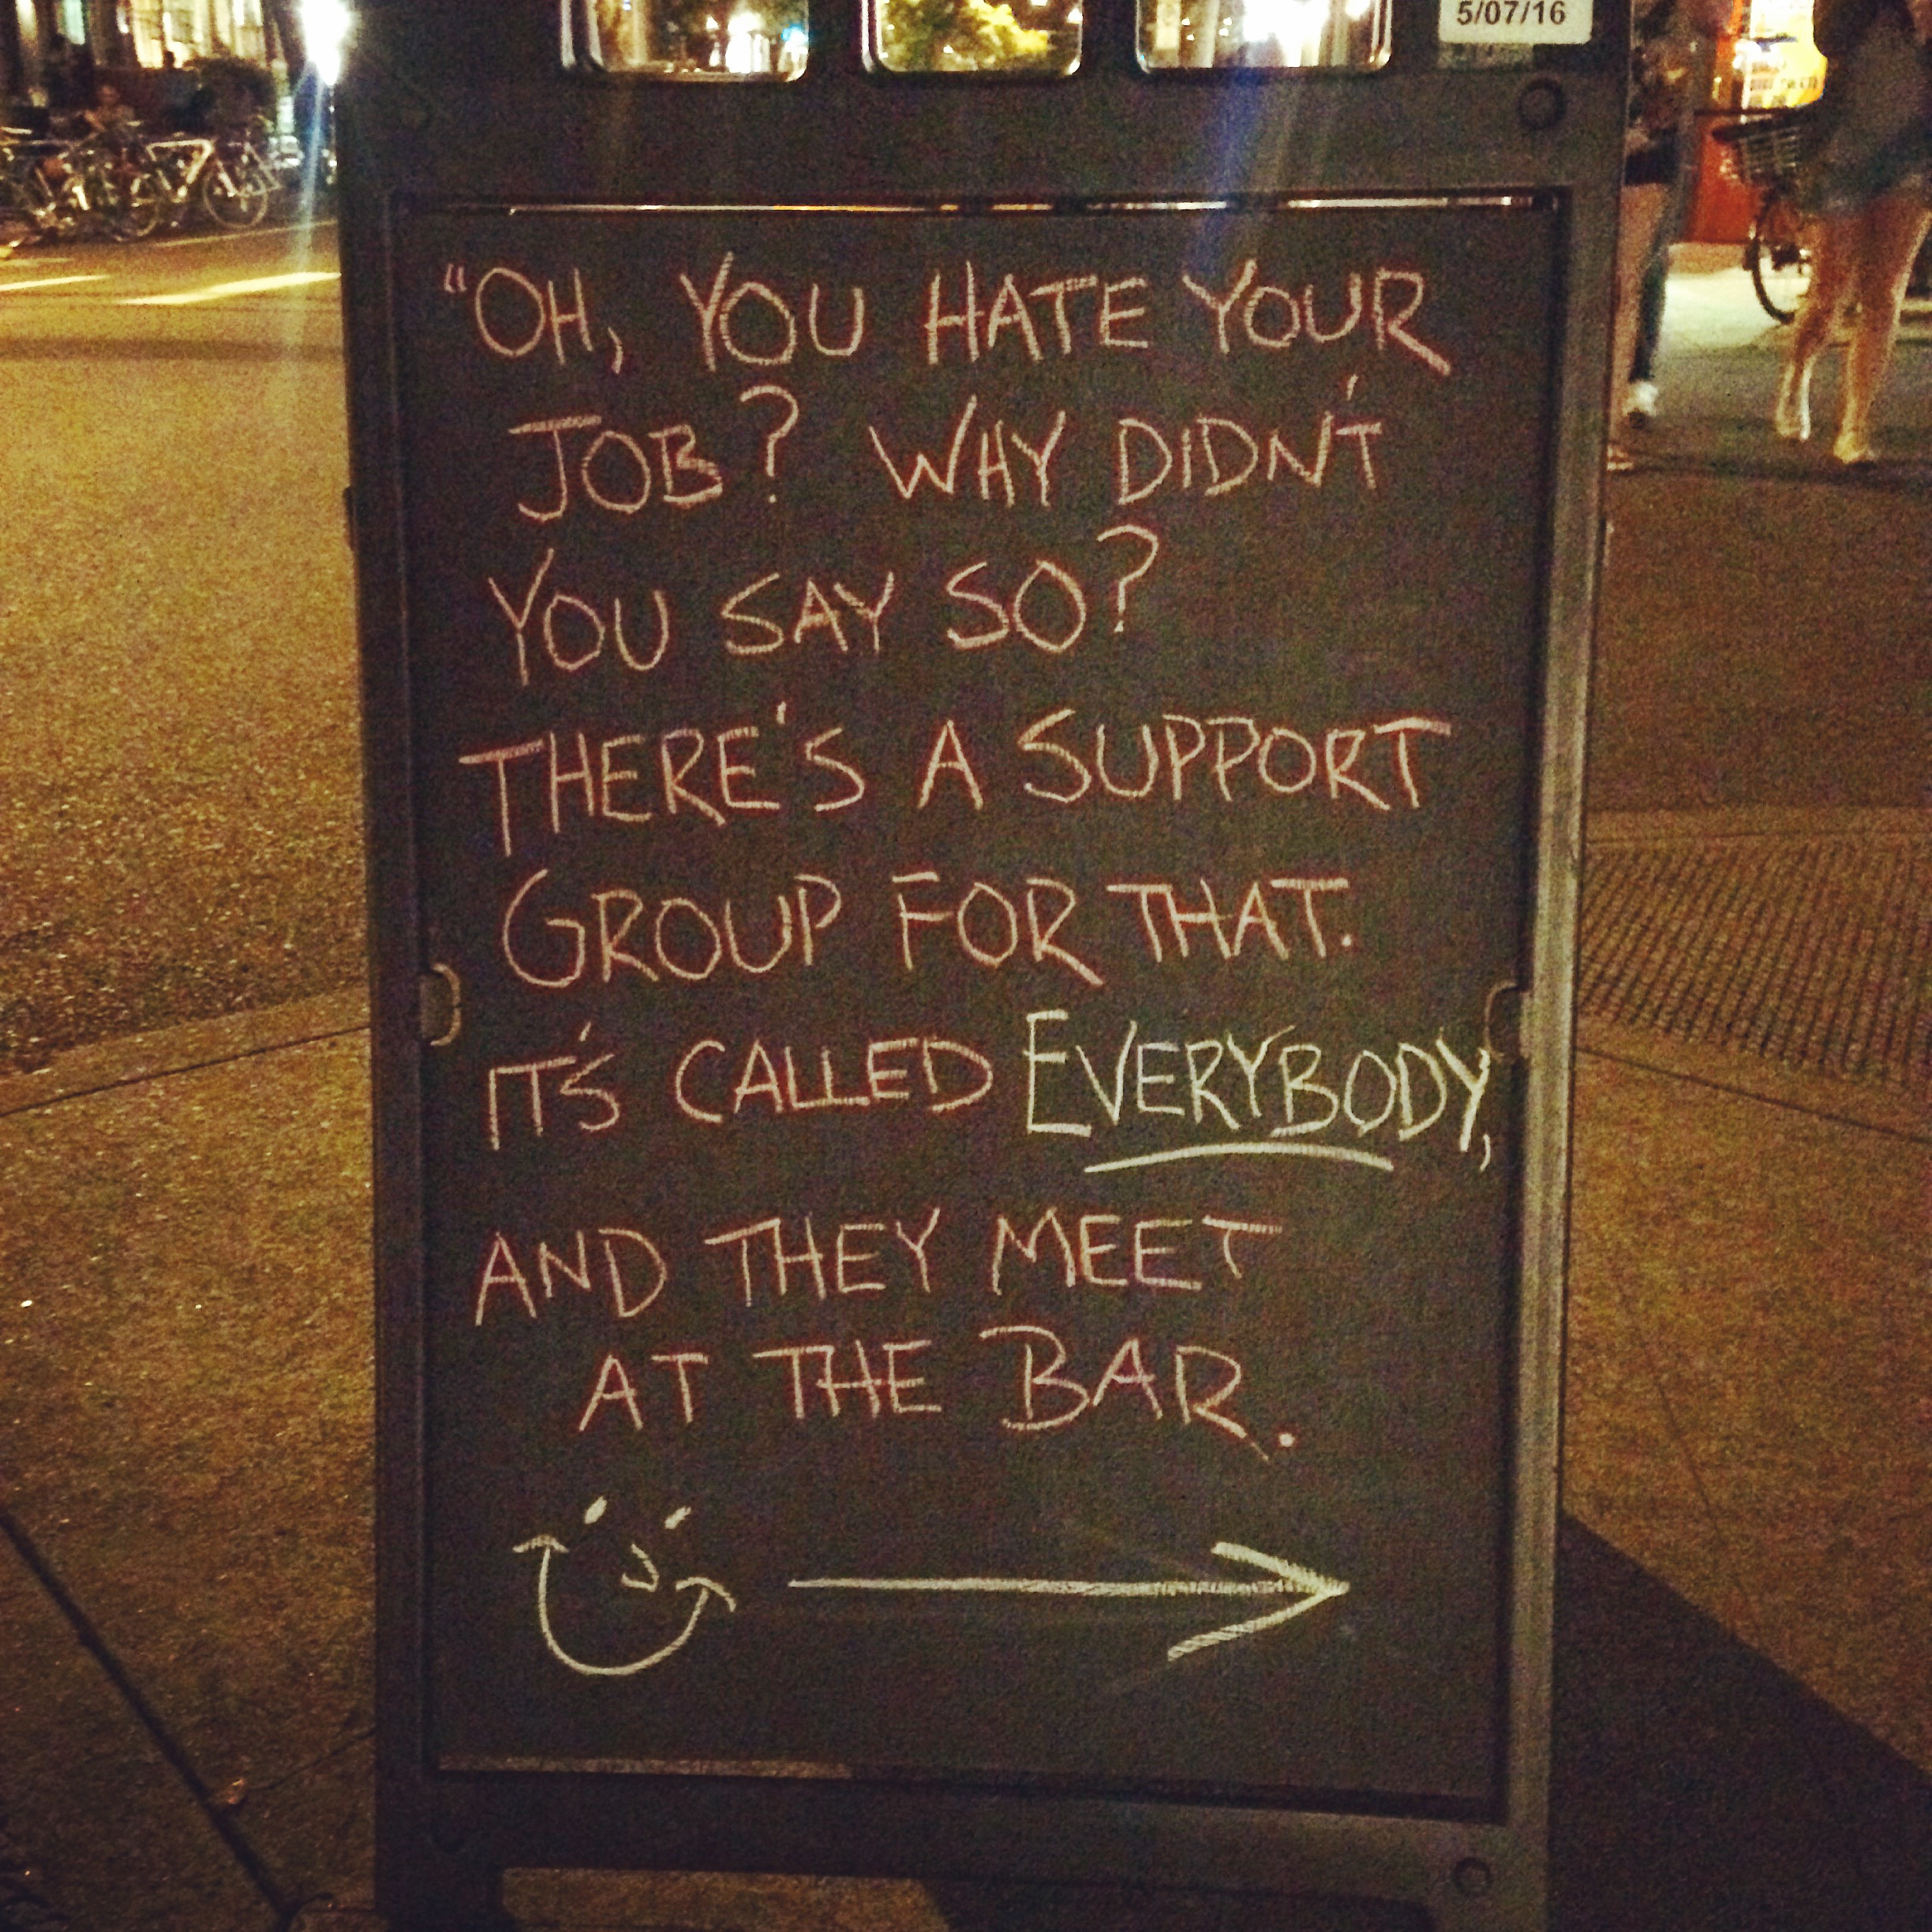 5/07/16
"OH, YOU HATE YOUR
JOB? WHY DIDN'T
YOU SAY SO?
THERE'S A SUPPORT
GROUP FOR THAT.
IT'S CALLED EVERYBODY,
AND THEY MEET
AT THE BAR.